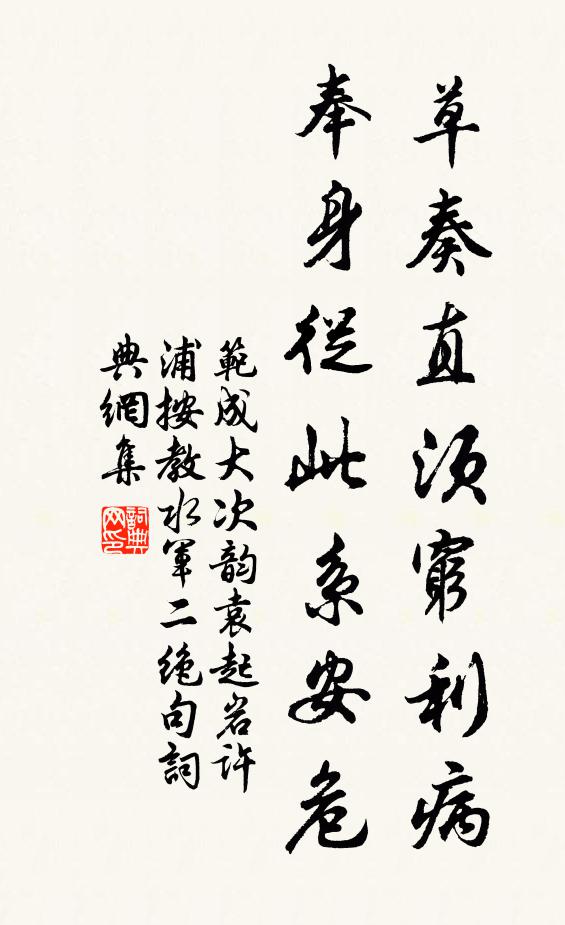 草奏直須窮利病
奉身從此系安危
範成大次韵袁起岩許
浦按教水軍二絶句詞
典網集
詞典
网印